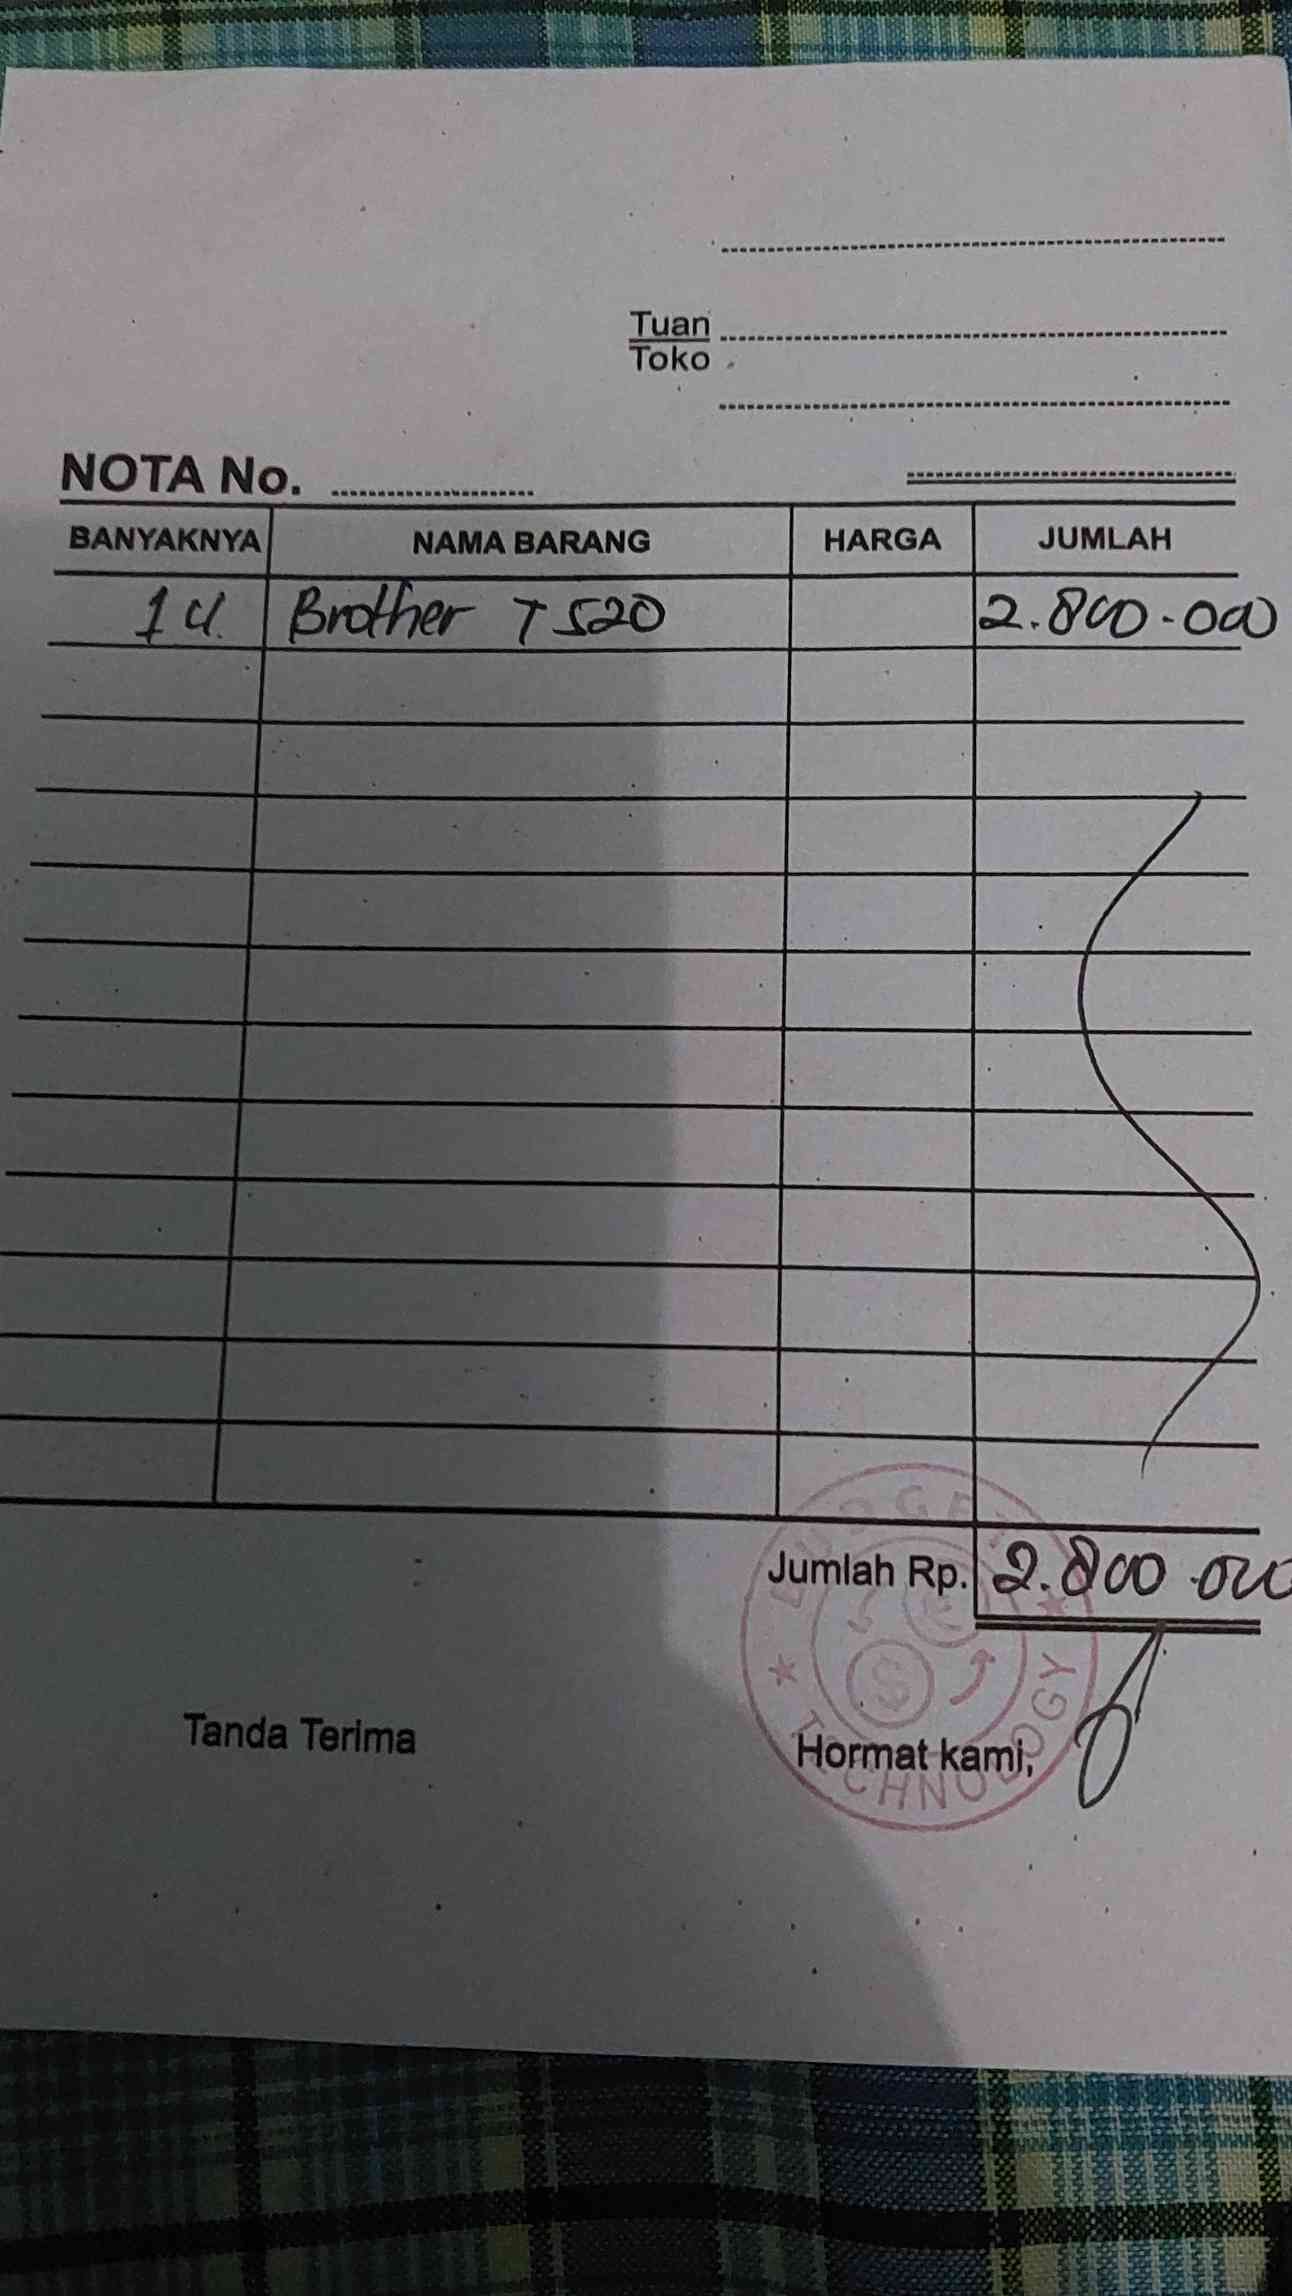 Tuan
Toko
NOTA No.
BANYAKNYA NAMA BARANG HARGA JUMLAH
1 U. Brother T520 2.800.000
Jumlah Rp. 2.800.000
Tanda Terima Hormat kami,
TECHNOLOGY